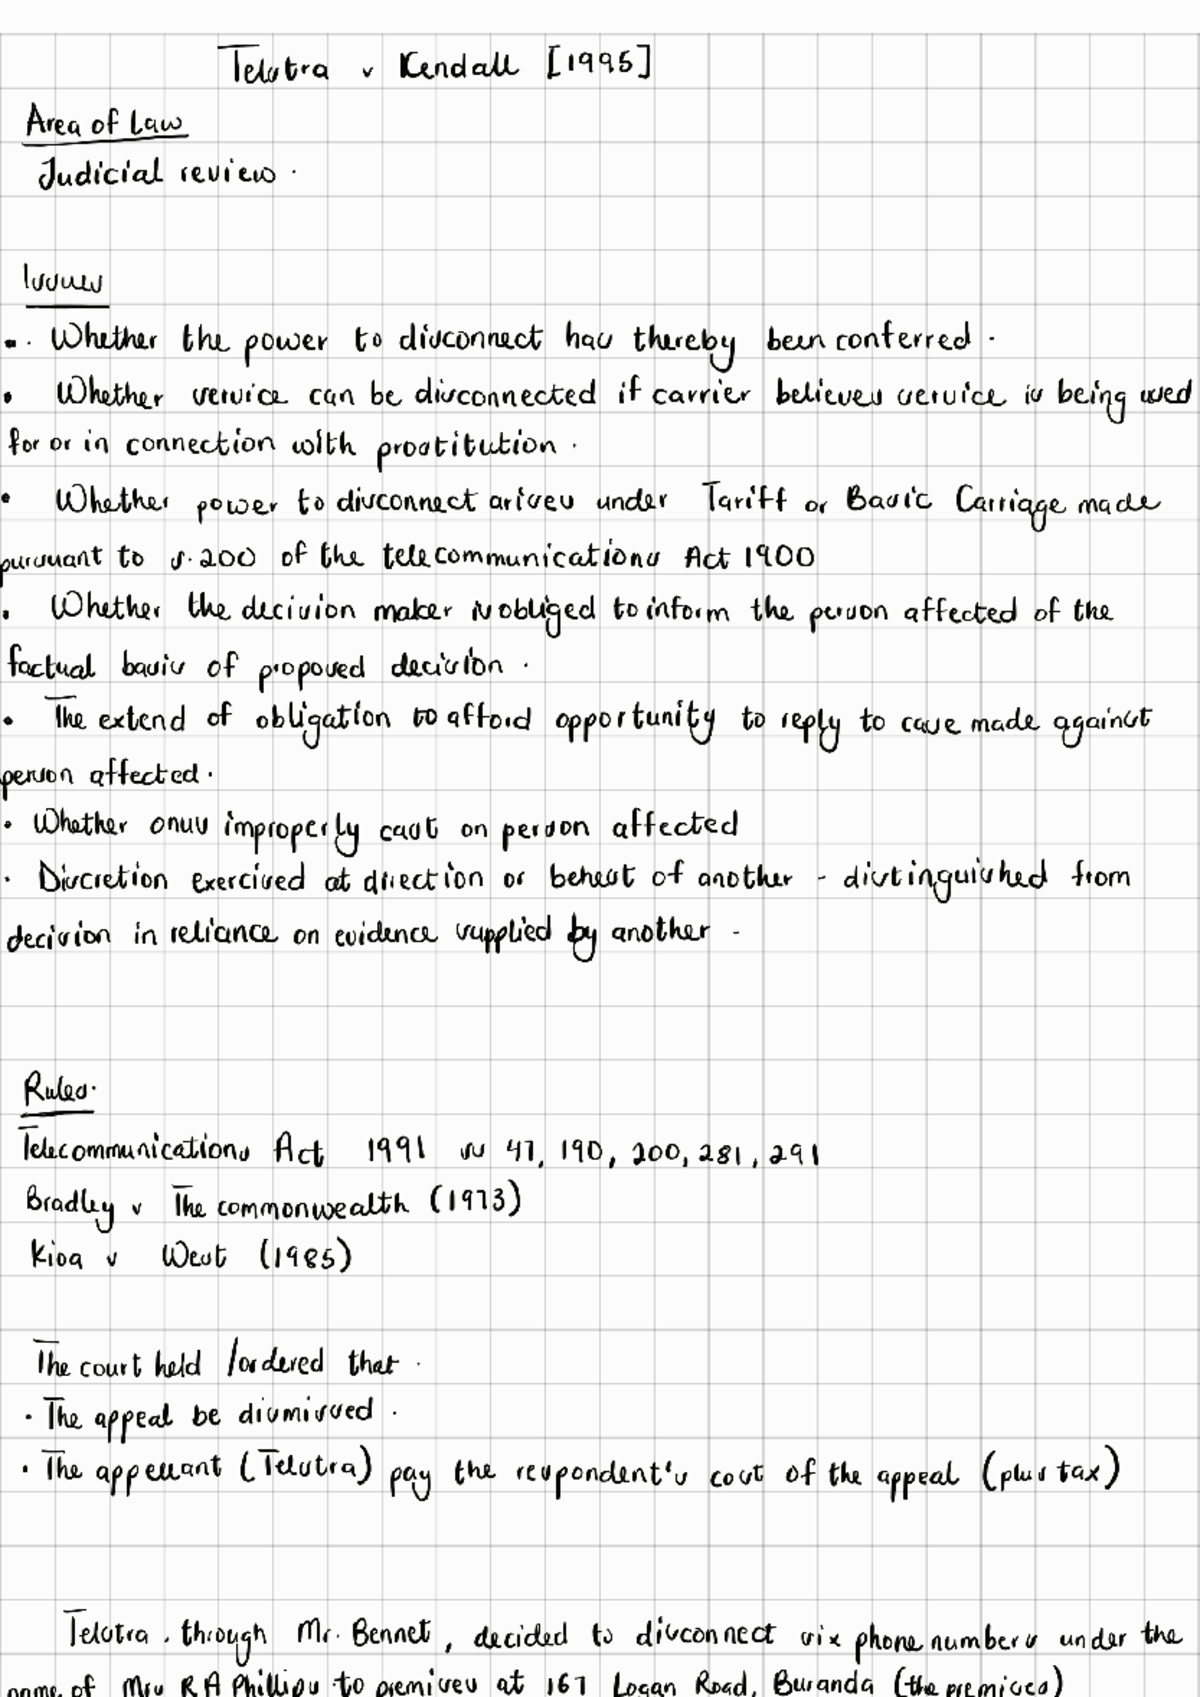 Telstra v Kendall [1995]
Area of Law
Judicial review.
Issues
• Whether the power to disconnect has thereby been conferred.
• Whether service can be disconnected if carrier believes service is being used
for or in connection with prostitution.
• Whether power to disconnect arises under Tariff or Basic Carriage made
pursuant to s.200 of the telecommunications Act 1900
• Whether the decision maker is obliged to inform the person affected of the
factual basis of proposed decision.
• The extend of obligation to afford opportunity to reply to case made against
person affected.
• Whether onus improperly cast on person affected
• Discretion exercised at direction or behest of another - distinguished from
decision in reliance on evidence supplied by another -
Rules.
Telecommunications Act 1991 ss 47, 190, 200, 281, 291
Bradley v The commonwealth (1973)
Kioa v West (1985)
The court held /ordered that.
• The appeal be dismissed.
• The appellant (Telstra) pay the respondent's cost of the appeal (plus tax)
Telstra, through Mr. Bennet, decided to disconnect six phone numbers under the
name of Mrs R A Phillips to premises at 167 Logan Road, Buranda (the premises)